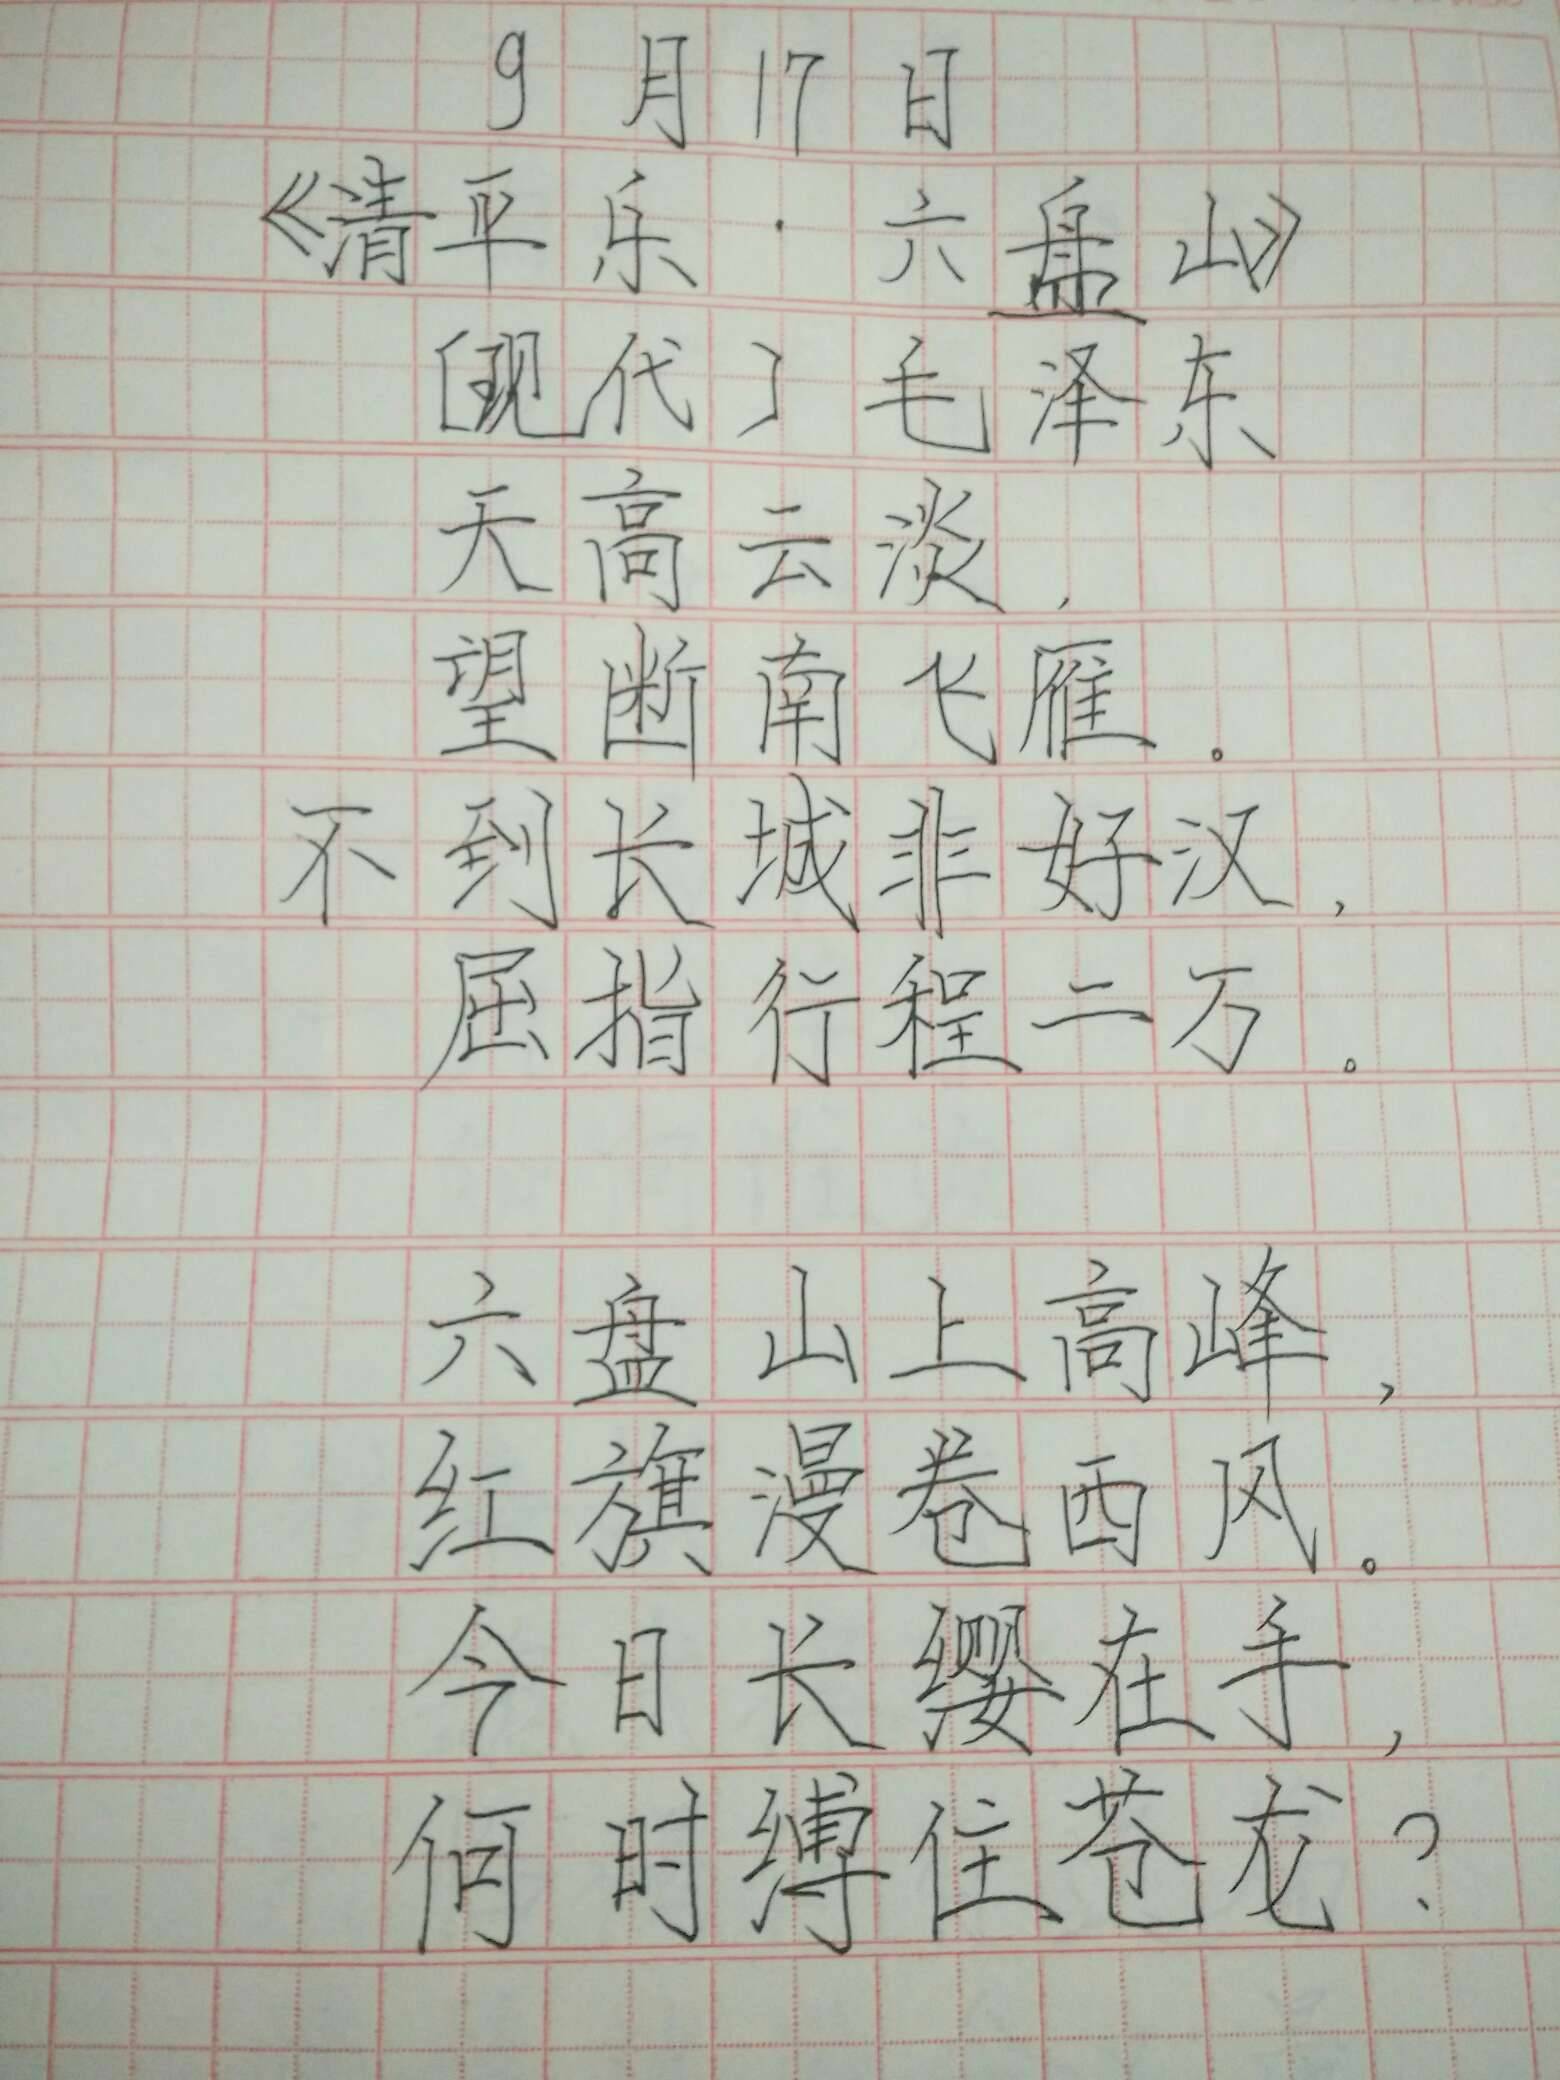 9月17日
《清平乐·六盘山》
〔现代〕毛泽东
天高云淡，
望断南飞雁。
不到长城非好汉，
屈指行程二万。
六盘山上高峰，
红旗漫卷西风。
今日长缨在手，
何时缚住苍龙？